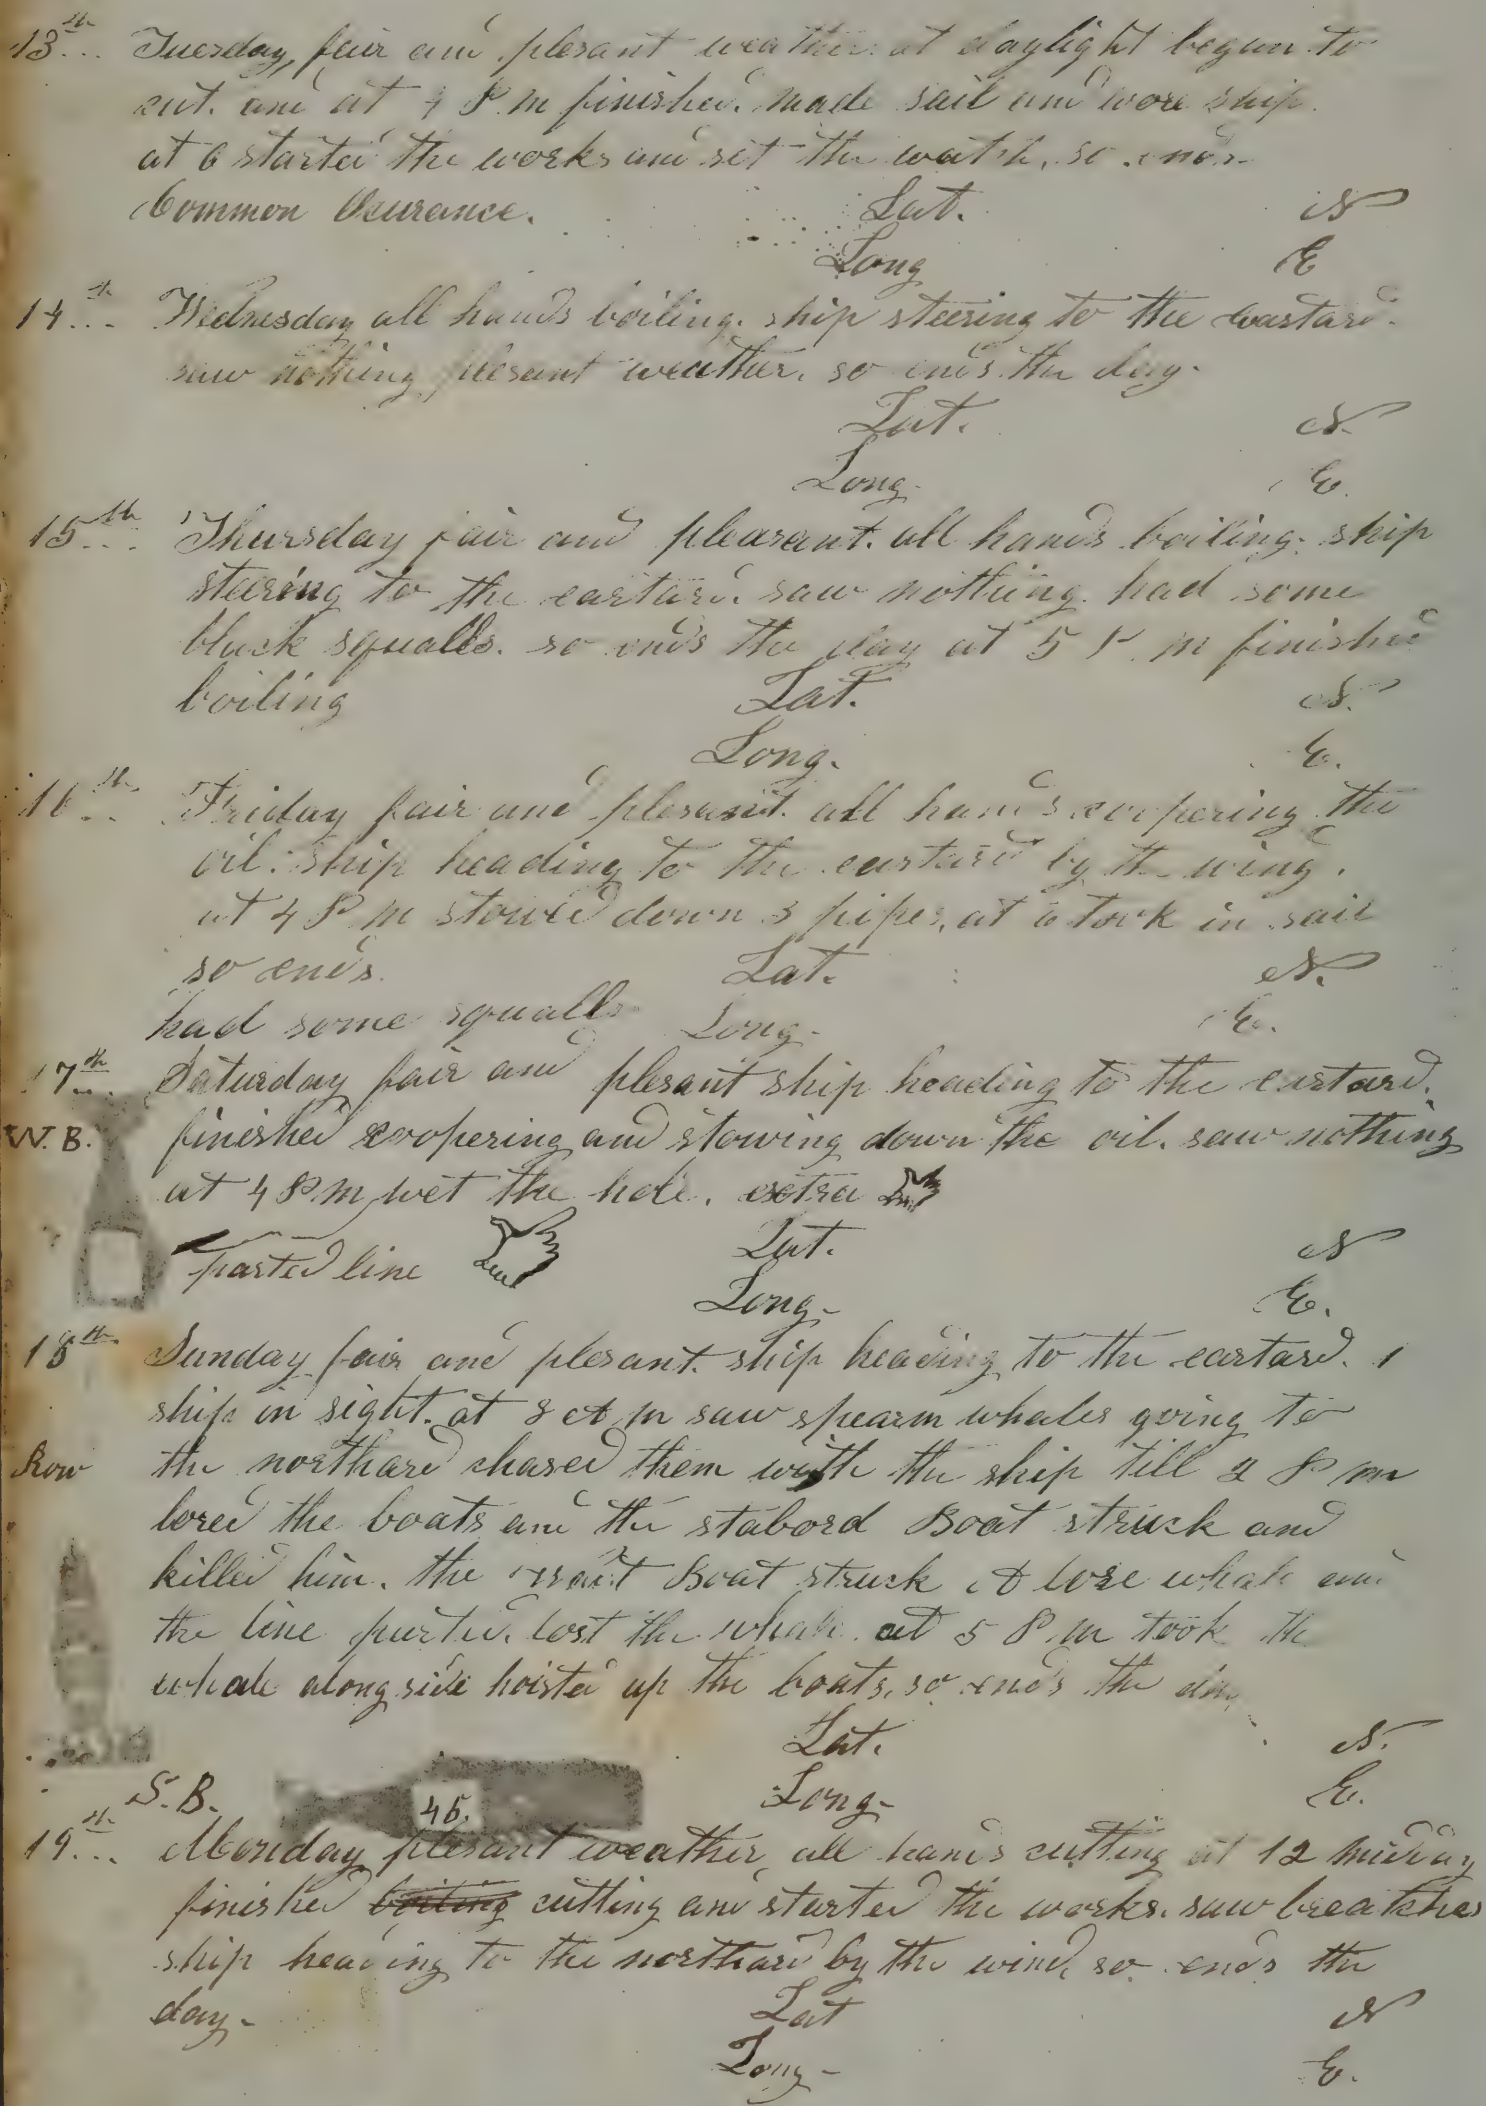 13th... Tuesday, fair and plesant weather. at daylight began to
cut. and at 4 P m finished. made sail and wore ship.
at 6 started the works and set the watch. so ends
Common Ocurance. Lat. N
Long E
14th... Wednesday all hands boiling. ship steering to the eastard.
saw nothing plesant weather. so ends the day.
Lat. N.
Long. E.
15th... Thursday fair and pleasant. all hands boiling. ship
steering to the eastard. saw nothing. had some
black squalls. so ends the day at 5 P. m finished
boiling Lat. N.
Long. E.
16th... Friday fair and plesant. all hands coopering the
oil. ship heading to the eastard by the wing.
at 4 P m stowed down 3 pipes, at 6 took in sail
so ends. Lat. N.
had some squalls Long- E.
17th... Saturday fair and plesant ship heading to the eastard.
W. B. finished coopering and stowing down the oil. saw nothing
at 4 P m wet the hole. extra
parted line Lat. N
Long- E.
18th Sunday fair and plesant. ship heading to the eastard. 1
ship in sight. at 8 A m saw spearm whales going to
the northard chased them with the ship till 2 P m
lored the boats and the stabord Boat struck and
killed him. the Boat struck A lose whale and
the line parted. lost the whale. at 5 P. m took the
whale along side hoisted up the boats. so ends the day
Lat. N.
S. B. Long- E.
45.
19th... Monday plesant weather, all hands cutting at 12 midday
finished boiling cutting and started the works. saw breatches
ship heading to the northard by the wind. so ends the
day- Lat N
Long- E.